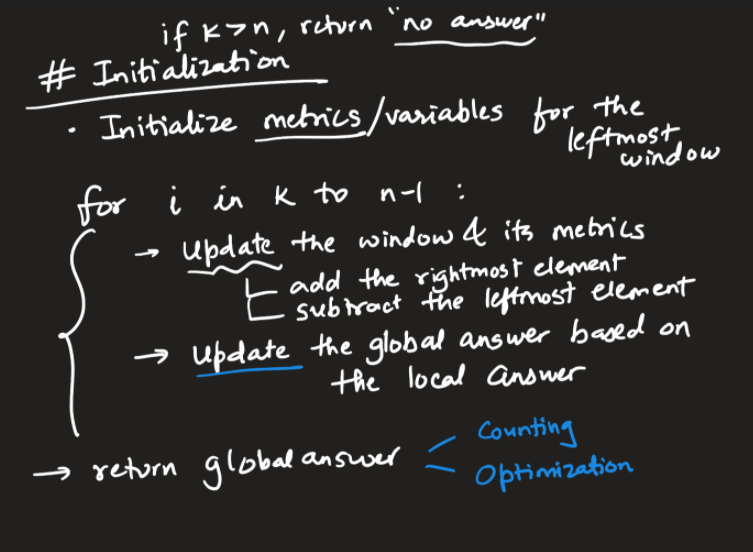 if k>n, return "no answer"
# Initialization
· Initialize metrics/variables for the
leftmost
window
for i in k to n-1 :
→ update the window & its metrics
add the rightmost element
subtract the leftmost element
→ update the global answer based on
the local answer
→ return global answer
Counting
Optimization